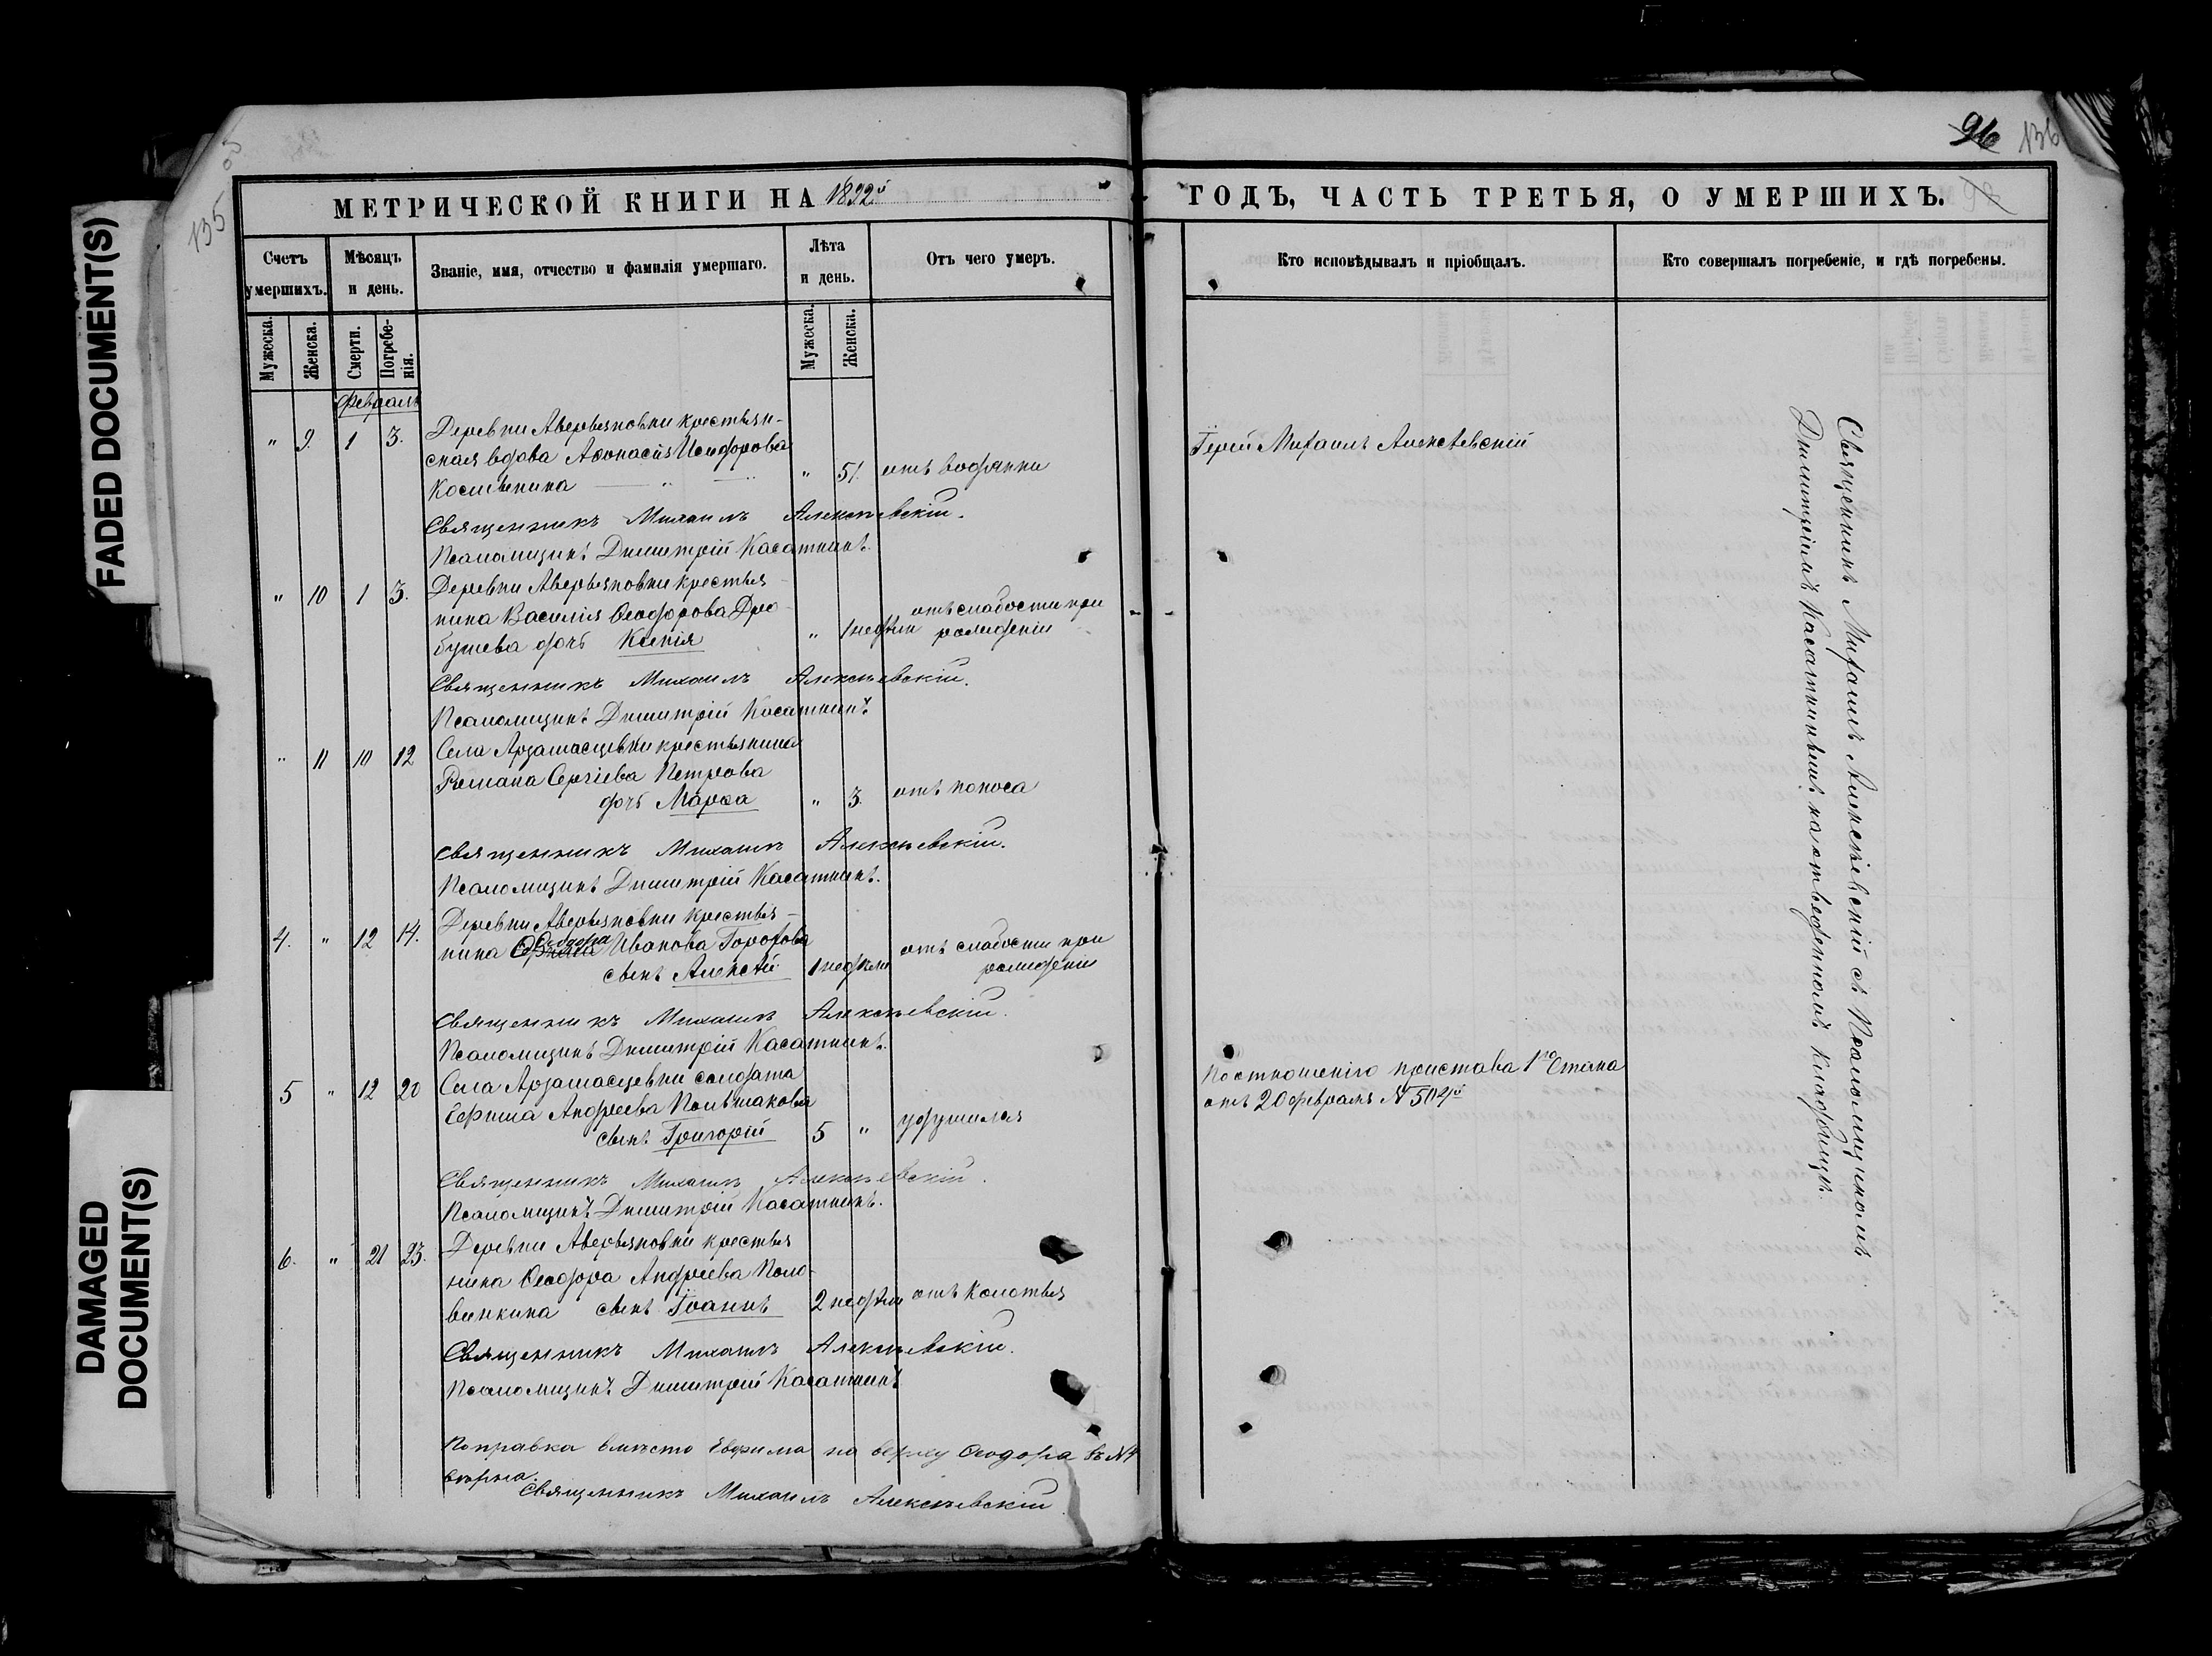 FADED DOCUMENT(S)
DAMAGED
DOCUMENT(S)
135
96 136
МЕТРИЧЕСКОЙ КНИГИ НА 1892й
ГОДЪ, ЧАСТЬ ТРЕТЬЯ, О УМЕРШИХЪ.
Счетъ умершихъ.
Мѣсяцъ и день.
Званіе, имя, отчество и фамилія умершаго.
Лѣта и день.
Отъ чего умеръ.
Кто исповѣдывалъ и пріобщалъ.
Кто совершалъ погребеніе, и гдѣ погребены.
Мужеска.
Женска.
Смерти.
Погребе-
нія.
Мужеска.
Женска.
Февраль
Деревни Аверьяновки крестьян-
" 9. 1 3. ская вдова Аѳонасія Исидорова Іерей Михаилъ Алексѣевскій
" 51. отъ водянки
Священникъ Михаилъ Алексѣевскій.
Псаломщикъ Димитрій Касаткинъ.
" 10 1 3. Деревни Аверьяновки крестья-
нина Василія Ѳеодорова Дро-
бушева дочь Ксенія " 1 недѣли отъ слабости при
рожденіи
Священникъ Михаилъ Алексѣевскій.
Псаломщикъ Димитрій Касаткинъ
" 11 10 12 Села Арзамасцевки крестьянина
Романа Сергіева Петрова
дочь Марѳа " 3. отъ поноса
Священникъ Михаилъ Алексѣевскій.
Псаломщикъ Димитрій Касаткинъ.
4. " 12 14. Деревни Аверьяновки крестья-
нина Ѳеодора Иванова Горохова
сынъ Алексѣй 1 недѣли отъ слабости при
рожденіи
Священникъ Михаилъ Алексѣевскій.
Псаломщикъ Димитрій Касаткинъ.
5 " 12 20 Села Арзамасцевки солдата
Ефима Андреева Полшакова
сынъ Григорій 5 " удушился
По отношенію пристава 1го Стана
отъ 20 февраля №
Священникъ Михаилъ Алексѣевскій.
Псаломщикъ Димитрій Касаткинъ.
6. " 21 23. Деревни Аверьяновки крестья
нина Ѳеодора Андреева Поло-
винкина сынъ Іоаннъ 2 недѣли отъ колотья
Священникъ Михаилъ Алексѣевскій.
Псаломщикъ Димитрій Касаткинъ
Поправка вмѣсто Евфима на верху Ѳеодора въ № 4
вѣрна.
Священникъ Михаилъ Алексѣевскій
Священникъ Михаилъ Алексѣевскій съ Псаломщикомъ
Димитріемъ Касаткинымъ на отведенномъ кладбищѣ.